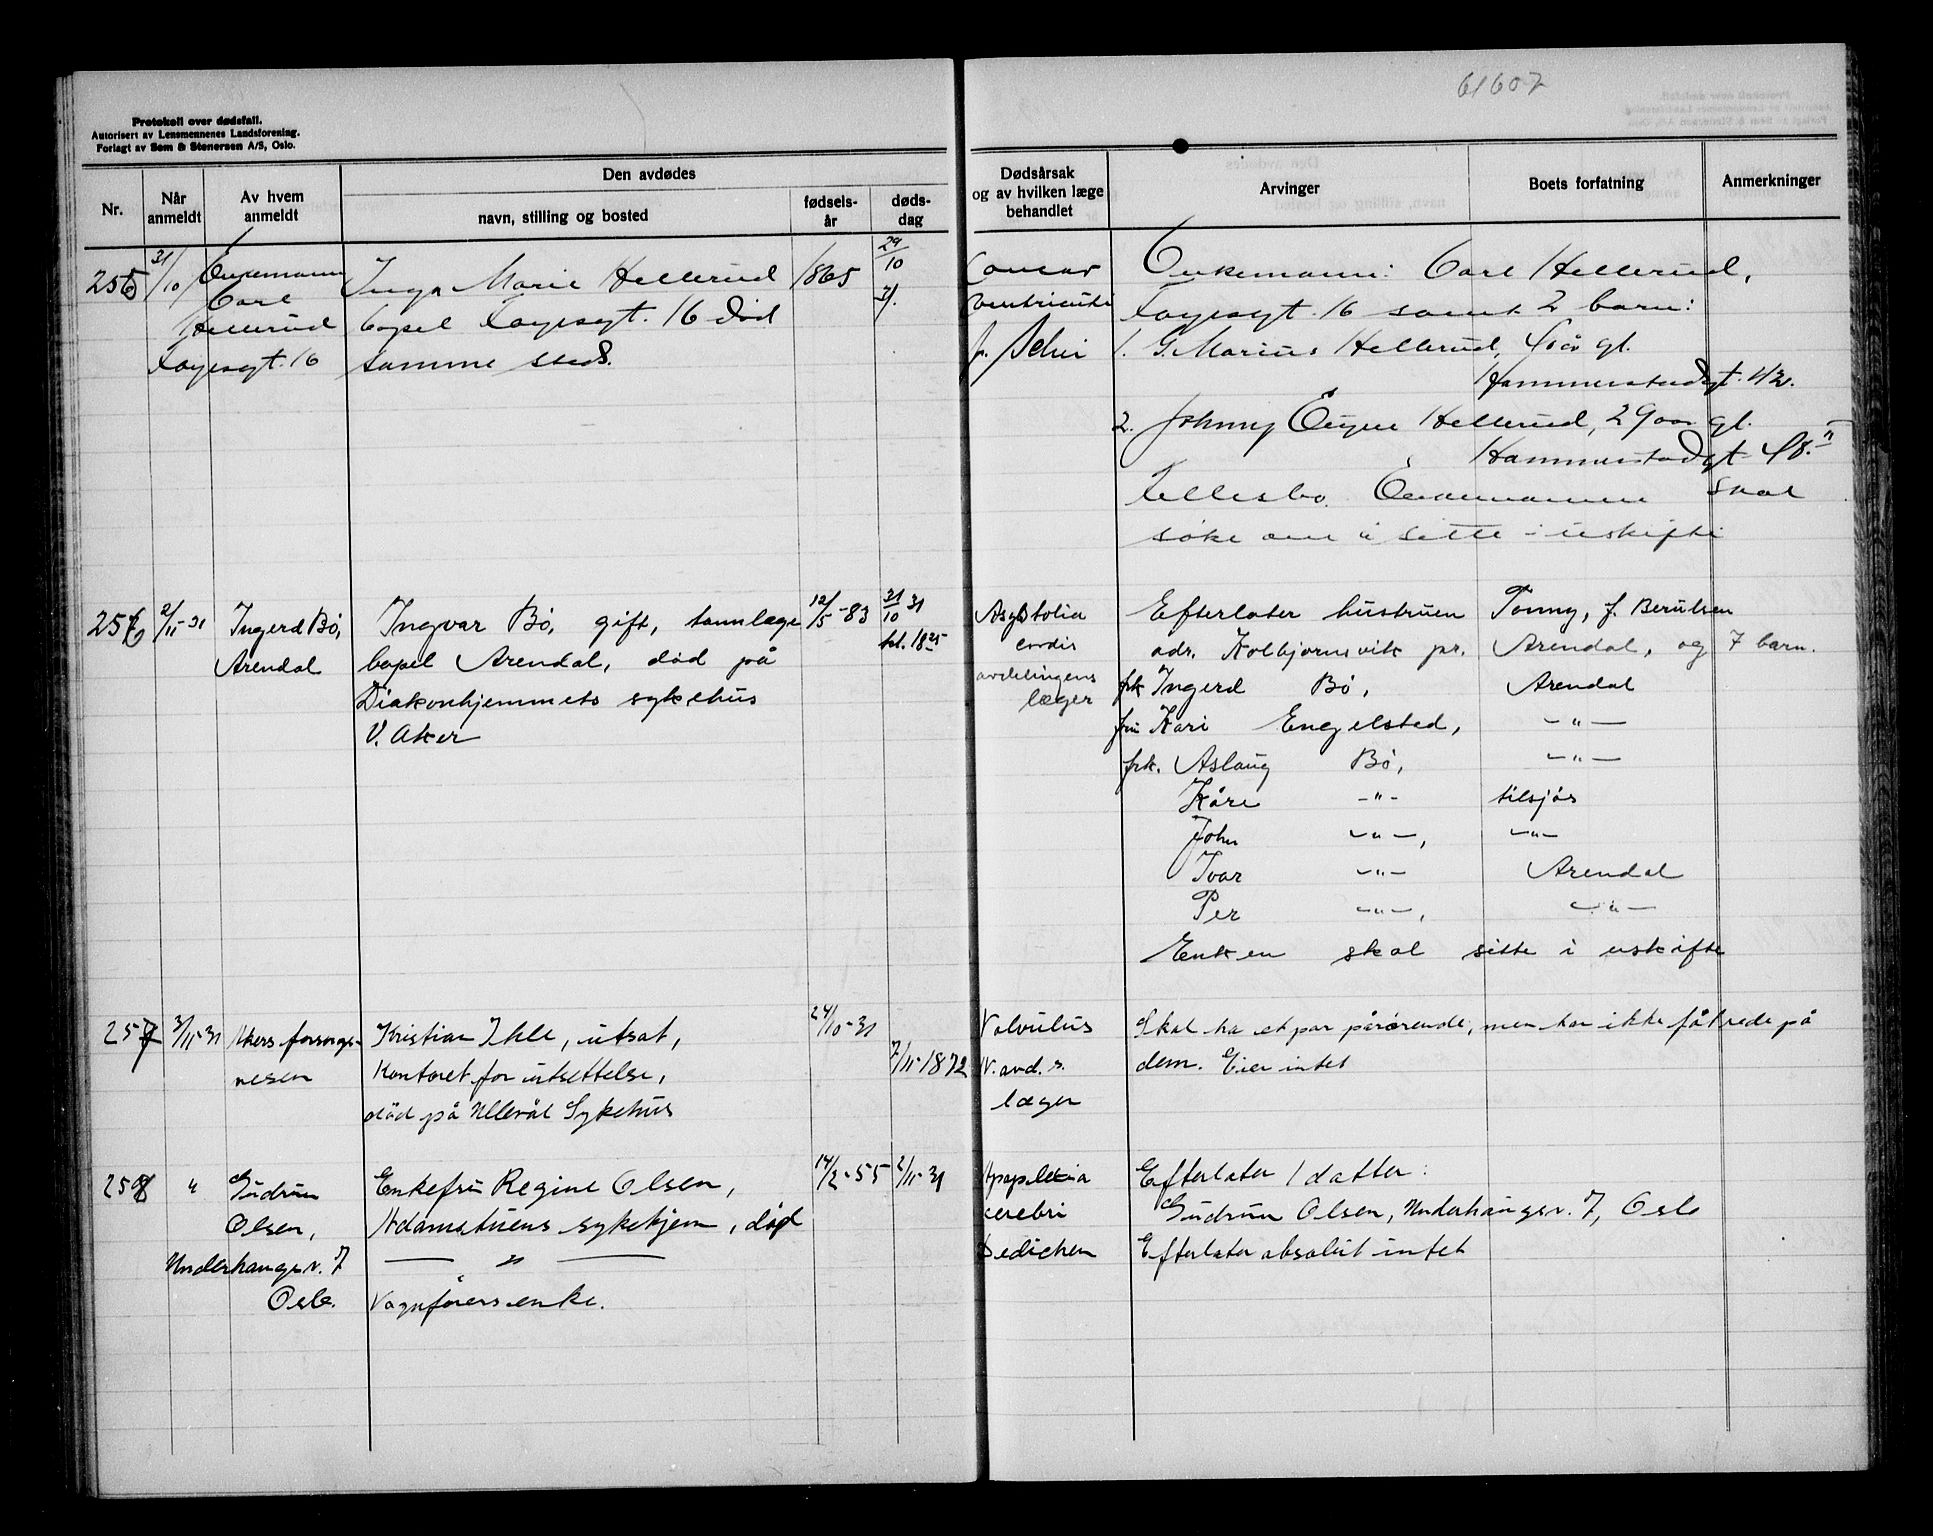 61607
Protokoll over dødsfall.
Autorisert av Lensmennenes Landsforening.
Forlagt av Sem & Stenersen A/S, Oslo.
Nr.
Når anmeldt
Av hvem anmeldt
Den avdødes
navn, stilling og bosted
fødsels-år
døds-dag
Dødsårsak og av hvilken læge behandlet
Arvinger
Boets forfatning
Anmerkninger
255 31/10 Enkemann Inga Marie Hellerud 1865 29/10
Carl
Hellerud bopel Fagesgt. 16 død 31.
Fagesgt. 16 samme sted.
Cancer Enkemann: Carl Hellerud,
ventriculi Fagesgt. 16 samt 2 barn:
1. G. Marius Hellerud, 40 år gl.
Hammerstadgt. 42.
2. Johnny Eugen Hellerud, 29 aar gl.
Hammerstadgt. 48.
Fellesbo. Enkemannen skal
søke om å sitte i uskifte
256 2/11-31 Ingerd Bø, Ingvar Bø, gift, tannlæge 12/5-83 31/10 31
Arendal bopel Arendal, død på kl. 18 25
Diakonhjemmets sykehus
V. Aker
Asystolia Efterlater hustruen Tonny, f. Berulsen
cordis adr. Kolbjørnsvik pr. Arendal, og 7 barn.
avdelingens frk Ingerd Bø, Arendal
læger
fru Kari Engelsted, -"-
frk. Aslaug Bø, -"-
Kåre -"- tilsjøs
John -"-, -"-
Ivar -"- Arendal
Per -"-, -"-
Enken skal sitte i uskifte
257 3/11-31 Akers forsorgs- Kristian Ihle, utsat, 24/10-31
vesen Kontoret for utsettelse, 7/11-1872
død på Ullevål Sykehus
Volvulus Skal ha et par pårørende, men har ikke fåt rede på
V. avd. s. dem. Eier intet
læger
258 " Gudrun Enkefru Regine Olsen, 14/2-55 2/11-31
Olsen, Adamstuens sykehjem, død
Underhaugsv. 7 — " —
Oslo. Vognførerenke.
Apoplexia Efterlater 1 datter:
cerebri Gudrun Olsen, Underhaugsv. 7, Oslo
Dedichen Efterlater absolut intet